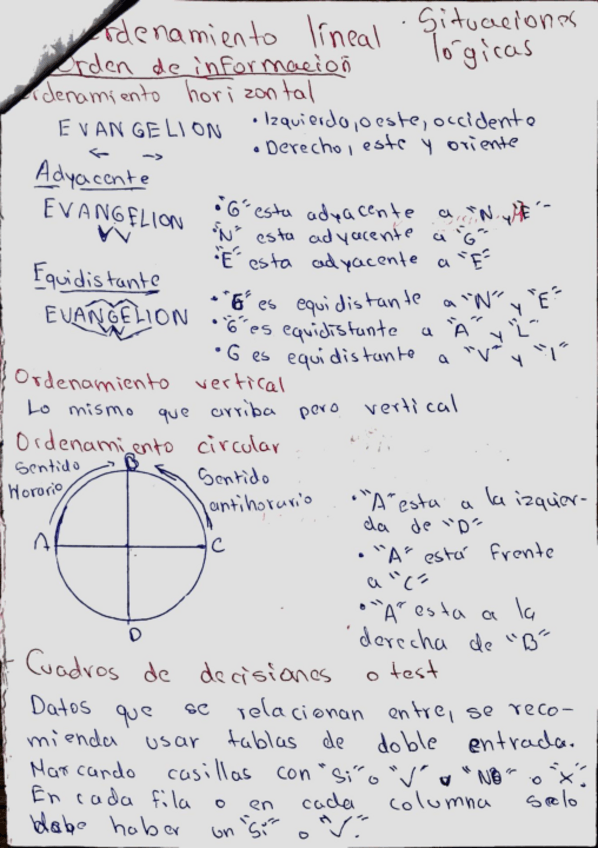 rdenamiento lineal · Situaciones lógicas
Orden de informacion
rdenamiento horizontal
EVANGELION
• Izquierdo, oeste, occidente
• Derecho, este y oriente
Adyacente
EVANGELION
• "G" esta adyacente a "N y E"
"N" esta adyacente a "G"
"E" esta adyacente a "E"
Equidistante
EVANGELION
• "G" es equidistante a "N" y "E"
• "G" es equidistante a "A" y "L"
• G es equidistante a "V" y "I"
Ordenamiento vertical
Lo mismo que arriba pero vertical
Ordenamiento circular
Sentido
Horario
B
Sentido
antihorario
A
C
D
• "A" esta a la izquier-
da de "D"
• "A" está frente
a "C"
• "A" esta a la
derecha de "B"
Cuadros de decisiones o test
Datos que se relacionan entre, se reco-
mienda usar tablas de doble entrada.
Marcando casillas con "Si" o "V" v "No" o "X".
En cada fila o en cada columna solo
debe haber un "Si" o "V".